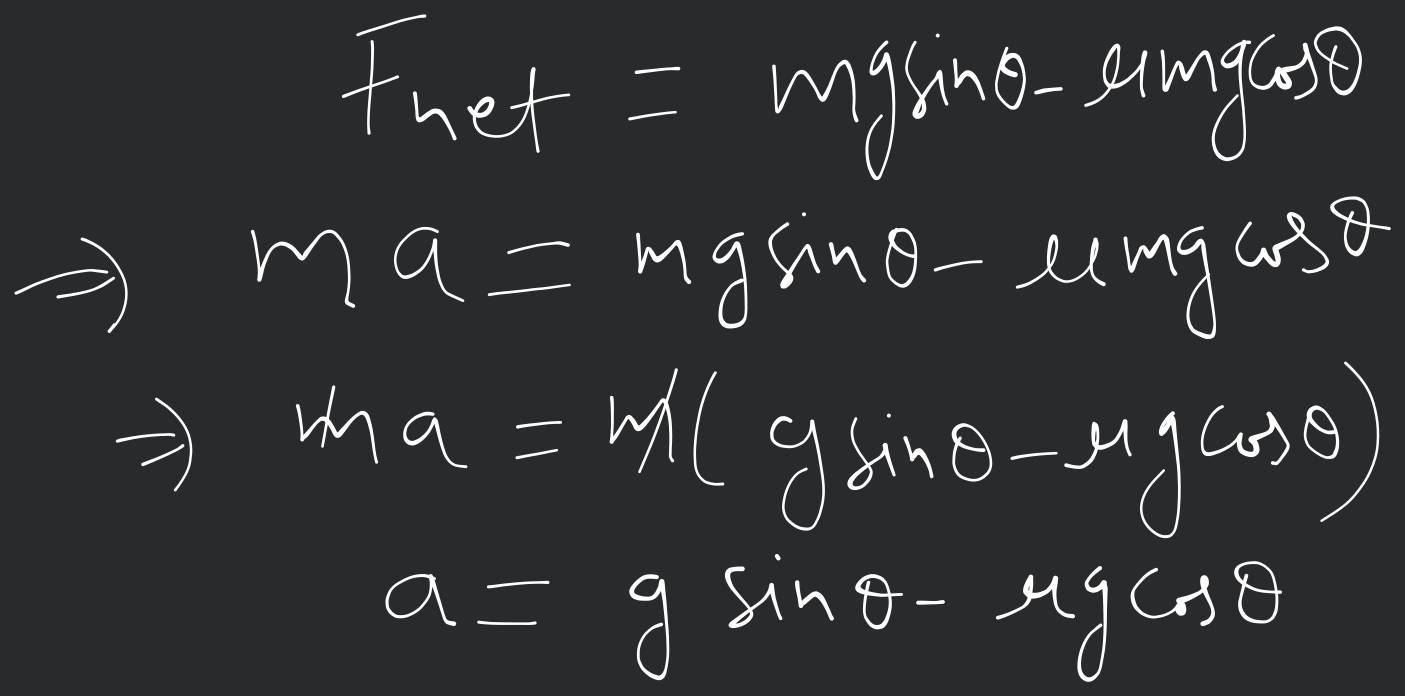 Fnet = mgsinθ - μmgcosθ
⇒ ma = mgsinθ - μmgcosθ
⇒ ma = m(gsinθ - μgcosθ)
a = gsinθ - μgcosθ